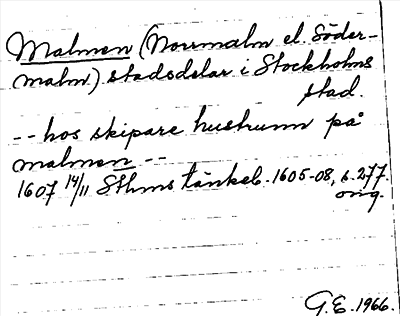 Malmen (Norrmalm el. Söder-
malm) stadsdelar i Stockholms
stad.
-- hos skipare hustrunn på
malmen --
1607 14/11 Sthms tänkeb. 1605-08, s. 277.
orig.
G.E. 1966.